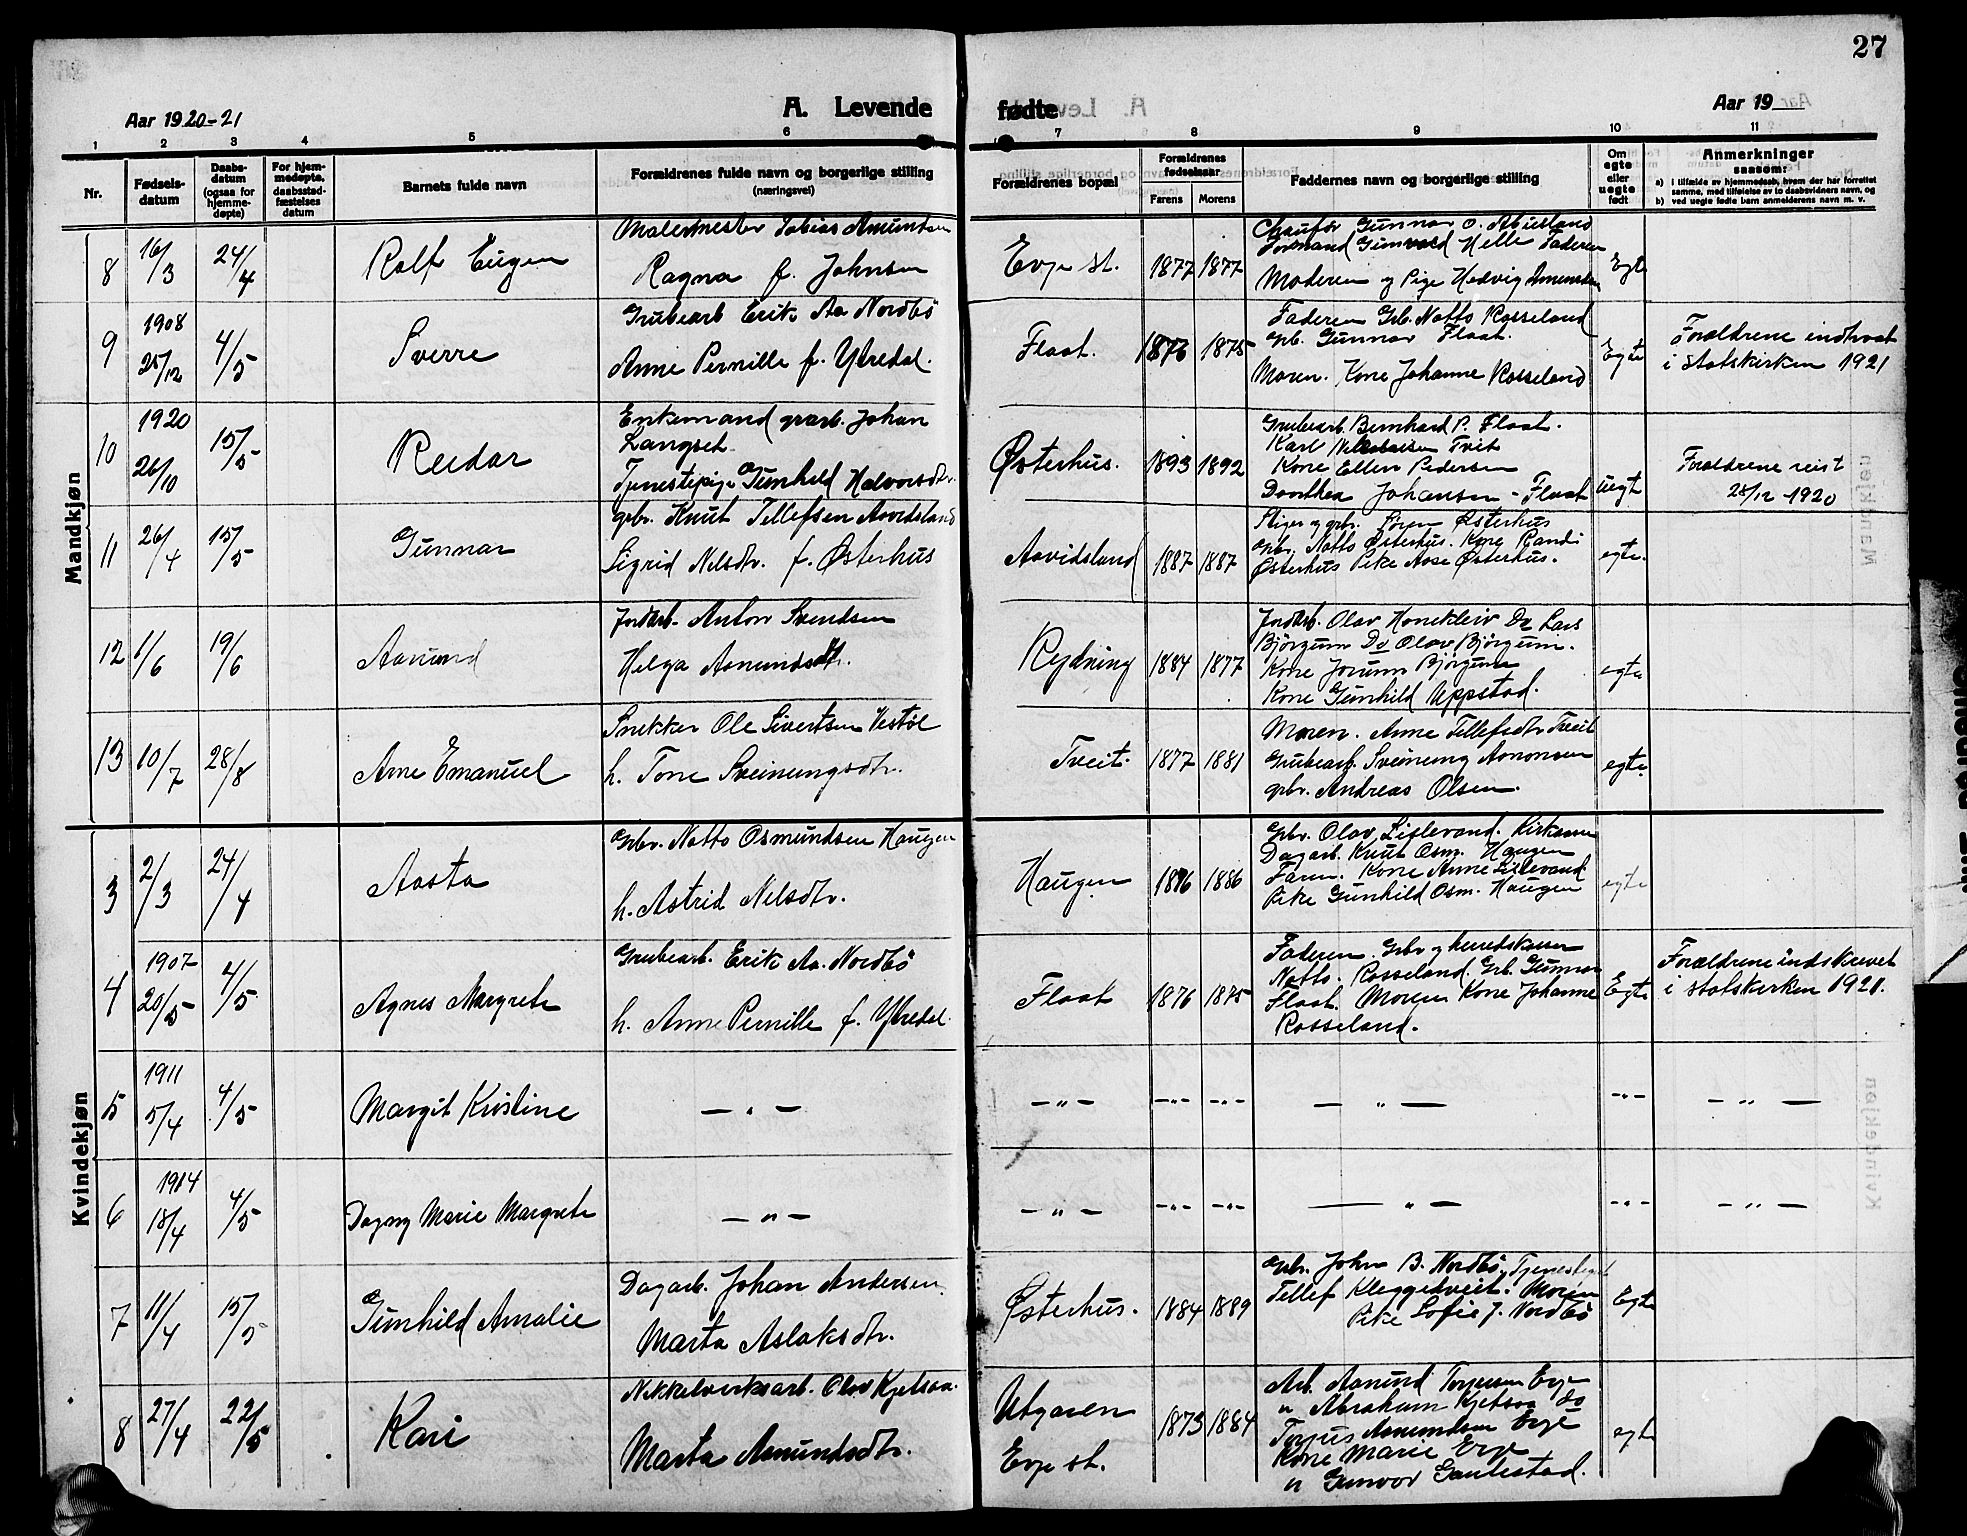 27
Aar 1920-21
A. Levende
fødte
Aar 19
1 2 3 4 5 6 7 8 9 10 11
Nr.
Fødsels-
datum
Daabs-
datum
(ogsaa for
hjemme-
døpte)
For hjem-
medøpte,
daabsstad-
fæstelses
datum
Barnets fulde navn
Forældrenes fulde navn og borgerlige stilling
(næringsvei)
Forældrenes bopæl
Forældrenes
fødselsaar
Farens Morens
Faddernes navn og borgerlige stilling
Om
egte
eller
uegte
født
Anmerkninger
saasom:
a) i tilfælde av hjemmedaab, hvem der har forrettet
samme, med tilføielse av to daabsvidners navn, og
b) ved uegte fødte barn anmelderens navn m. v.
Mandkjøn
8 16/3 24/4 Rolf Eugen
Malermester Tobias Amundsen
Ragna f. Johnsen
Evje st. 1877 1877
Chaufør Gunnar O. Abusland
Gunvald Helle Faderen
Moderen og Pige Hedvig Amundsen
Egte
9 1908
25/12 4/5 Sverre
Grubearb Erik Aa Nordbö
Anne Pernille f. Ytredal.
Flaat. 1876 1875
Faderen Grb. Notto Rosseland
Gb. Gunnar Flaat.
Moren. Kone Johanne Rosseland
Egte
Forældrene indtraat
i statskirken 1921
10 1920
26/10 15/5 Reidar
Enkemand grarb. Johan
Langset
Tjenestepige Gunhild Halvorsdtr.
Østerhus. 1893 1892
Grubearb. Bernhard P. Flaat.
Karl Tveit
Kone Ellen Pedersen
Dorthea Johansen - Flaat
uegt
Forældrene reist
28/12 1920
11 26/4 15/5 Gunnar
gbr. Knut Tellefsen Aavidsland
Sigrid Nelsdtr. f. Østerhus
Aavidsland 1887 1887
Stiger og gbr. Sören Østerhus
Gbr. Notto Østerhus. Kone Randi
Østerhus Pike Aase Østerhus.
egte.
12 1/6 19/6 Aanund
Jordarb. Anton Svendsen
Helga Aanundsdtr.
Rydning 1884 1877
Jordarb. Olav Honekleiv Do Lars
Björgum Do Olav Björgum.
Kone Jorunn Björgum
Kone Gunhild Uppstad.
egte
13 10/7 28/8 Arne Emanuel
Snekker Ole Sivertsen Vestöl
h. Tone Sveinungsdtr.
Tveit. 1877 1881
Moren. Anne Tellefsdtr Tveit
Grubearb. Sveinung Aanonsen
gbr. Andreas Olsen.
egte.
Kvindekjøn
3 2/3 24/4 Aasta
Gbr. Notto Osmundsen Haugen
h. Astrid Nelsdtr.
Haugen 1876 1886
Gbr. Olav Lislevand. Kirkesan
Dagarb. Knut Osm. Haugen
Faren. Kone Anne Lislevand
Pike Gunhild Osm. Haugen
egte
4 1907
20/5 4/5 Agnes Margrete
Grubearb. Erik Aa. Nordbö
h. Anne Pernille f. Ytredal.
Flaat 1876 1875
Faderen. Gbr og herredskasser
Notto. Rosseland. Gb. Gunnar
Flaat. Moren Kone Johanne
Rosseland.
Egte
Forældrene indskrevet
i statskirken 1921.
5 1911
5/4 4/5 Margit Kristine
— " — — " — -"- -"- — " — -"- — " —
6 1914
18/4 4/5 Dagny Marie Margrete
— " — — " — -"- -"- — " — -"- — " —
7 11/4 15/5 Gunhild Amalie
Dagarb. Johan Andersen.
Marta Aslaksdtr.
Østerhus. 1884 1889
Gbr. John B. Nordbö, Tjenestegut
Tellef Kleggetveit. Moren
Pike Sofie J. Nordbö
Egte
8 27/4 22/5 Kari
Nikkelverksarb. Olav Kjetsaa.
Marta Aanundsdtr.
Utgaren
Evje st. 1873 1884
Arb. Aanund Torjusen Evje
" Abraham Kjetsaa do
Torjus Aanundsen Evje
Kone Marie Evje
" Gunvor Gautestad.
egte